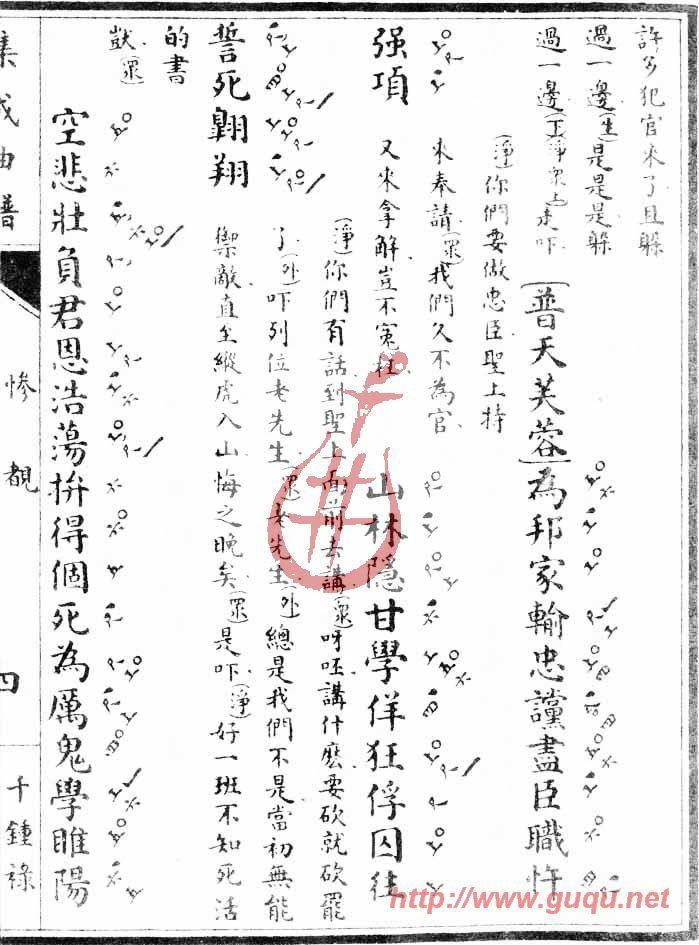 許多犯官來了且躲
過一邊(生)是是是躲
過一邊(丑淨眾上)走吓
【普天芙蓉】為邦家輸忠讜盡臣職忤
(淨)你們要做忠臣聖上特
來奉請(眾)我們久不為官
强項
又來拿解豈不冤枉
山林隱甘學佯狂俘囚往
(淨)你們有話到聖上面前去講(眾)呀呸講什麽要砍就砍罷
了(外)吓列位老先生(眾)老先生(外)總是我們不是當初無能
誓死翺翔
禦敵直至縱虎入山悔之晚矣(眾)是吓(淨)好一班不知死活
的書
獃(眾)
空悲壯負君恩浩蕩拚得個死為厲鬼學睢陽
集成曲譜
慘覩
四
千鍾祿
http://www.guqu.net